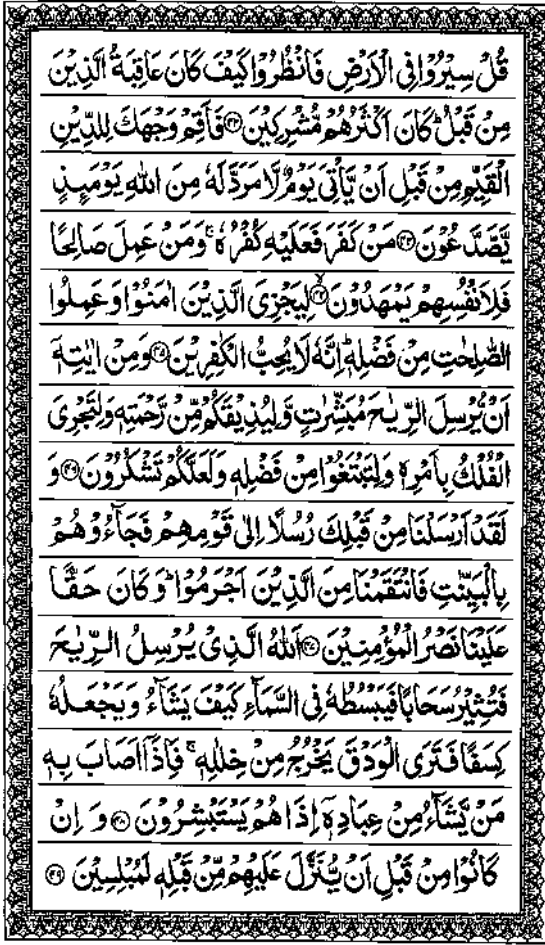 قُلۡ سِيۡرُوۡا فِى الۡاَرۡضِ فَانْظُرُوۡا كَيۡفَ كَانَ عَاقِبَةُ الَّذِيۡنَ
مِنۡ قَبۡلُ‌ؕ كَانَ اَكۡثَرُهُمۡ مُّشۡرِكِيۡنَ ﴿۴۲﴾ فَاَقِمۡ وَجۡهَكَ لِلدِّيۡنِ
الۡقَيِّمِ مِنۡ قَبۡلِ اَنۡ يَّاۡتِىَ يَوۡمٌ لَّا مَرَدَّ لَهٗ مِنَ اللّٰهِ‌ يَوۡمَٮِٕذٍ
يَّصَّدَّعُوۡنَ ﴿۴۳﴾ مَنۡ كَفَرَ فَعَلَيۡهِ كُفۡرُهٗ‌ۚ وَمَنۡ عَمِلَ صَالِحًا
فَلِاَنۡفُسِهِمۡ يَمۡهَدُوۡنَۙ ﴿۴۴﴾ لِيَجۡزِىَ الَّذِيۡنَ اٰمَنُوۡا وَعَمِلُوا
الصّٰلِحٰتِ مِنۡ فَضۡلِهٖ‌ؕ اِنَّهٗ لَا يُحِبُّ الۡكٰفِرِيۡنَ ﴿۴۵﴾ وَمِنۡ اٰيٰتِهٖۤ
اَنۡ يُّرۡسِلَ الرِّيٰحَ مُبَشِّرٰتٍ وَّلِيُذِيۡقَكُمۡ مِّنۡ رَّحۡمَتِهٖ وَلِتَجۡرِىَ
الۡفُلۡكُ بِاَمۡرِهٖ وَلِتَبۡتَغُوۡا مِنۡ فَضۡلِهٖ وَلَعَلَّكُمۡ تَشۡكُرُوۡنَ ﴿۴۶﴾ وَ
لَقَدۡ اَرۡسَلۡنَا مِنۡ قَبۡلِكَ رُسُلًا اِلٰى قَوۡمِهِمۡ فَجَآءُوۡهُمۡ
بِالۡبَيِّنٰتِ فَانْتَقَمۡنَا مِنَ الَّذِيۡنَ اَجۡرَمُوۡا‌ؕ وَكَانَ حَقًّا
عَلَيۡنَا نَصۡرُ الۡمُؤۡمِنِيۡنَ ﴿۴۷﴾ اَللّٰهُ الَّذِىۡ يُرۡسِلُ الرِّيٰحَ
فَتُثِيۡرُ سَحَابًا فَيَبۡسُطُهٗ فِى السَّمَآءِ كَيۡفَ يَشَآءُ وَيَجۡعَلُهٗ
كِسَفًا فَتَرَى الۡوَدۡقَ يَخۡرُجُ مِنۡ خِلٰلِهٖ‌ۚ فَاِذَاۤ اَصَابَ بِهٖ
مَنۡ يَّشَآءُ مِنۡ عِبَادِهٖۤ اِذَا هُمۡ يَسۡتَبۡشِرُوۡنَ ﴿۴۸﴾ وَ اِنۡ
كَانُوۡا مِنۡ قَبۡلِ اَنۡ يُّنَزَّلَ عَلَيۡهِمۡ مِّنۡ قَبۡلِهٖ لَمُبۡلِسِيۡنَ ﴿۴۹﴾